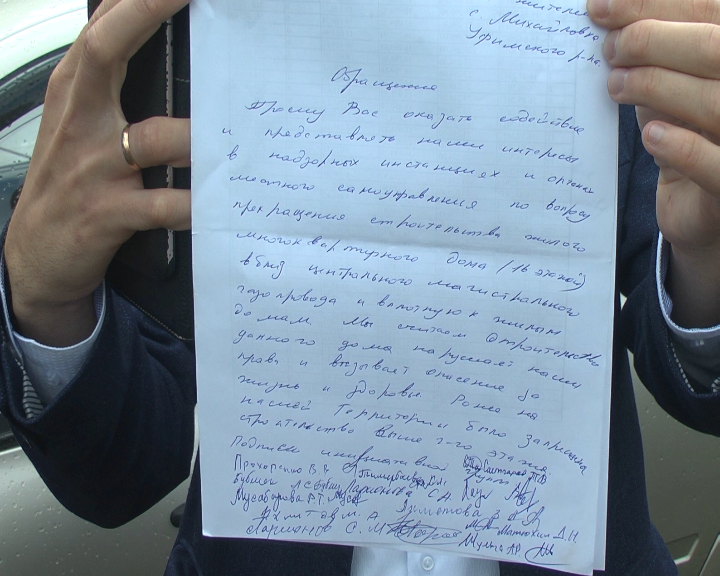 жители
с. Михайловка
Уфимского р-на.
Обращение
Прошу Вас оказать содействие
и представлять наши интересы
в надзорных инстанциях и органах
местного самоуправления по вопросу
прекращения строительства жилого
многоквартирного дома (16 этажей)
вблизи центрального магистрального
газопровода и вплотную к жилым
домам. Мы считаем строительство
данного дома нарушает наши
права и вызывает опасение за
жизнь и здоровье. Ранее на
нашей территории было запрещено
строительство выше 2-го этажа
Подписи инициативной группы
Прохоренко В.В.
С.А.
Мусабарова Р.Т.
Ахметов М. А.
Матюхин Д.И
Ларионов С. М